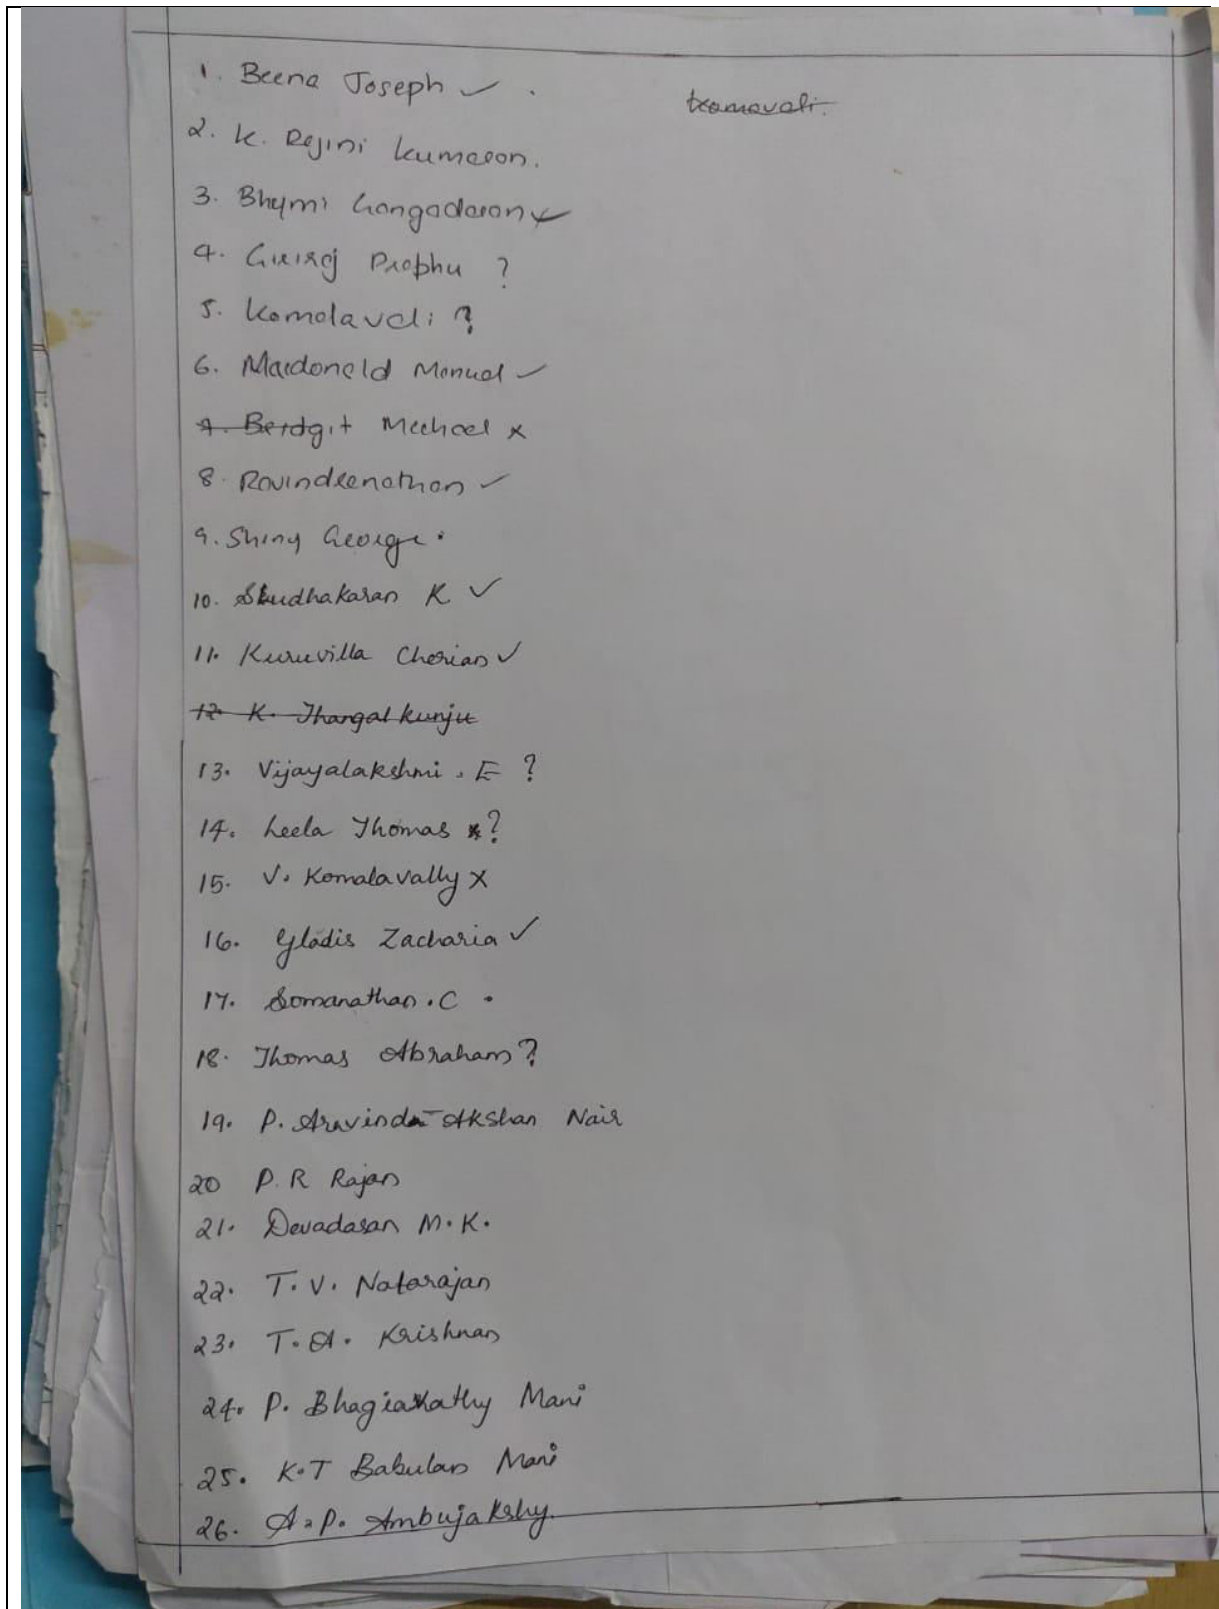 1. Beena Joseph ✓ .
2. K. Rejini Kumaron.
3. Bhymi Gangadaran ✓
4. Giriraj Prabhu ?
5. Komolavali ?
6. Macdoneld Manual ✓
7. Berdgit Mechael x
8. Ravindrenathan ✓
9. Shiny George .
10. Sudhakaran K ✓
11. Kuruvilla Cherian ✓
12. K. Thangal kunju
13. Vijayalakshmi . E ?
14. Leela Thomas x ?
15. V. Komalavally x
16. Gladis Zacharia ✓
17. Somanathan . C .
18. Thomas Abraham ?
19. P. Aravinda-Akshan Nair
20 P. R Rajan
21. Devadasan M. K.
22. T. V. Natarajan
23. T. A. Krishnan
24. P. Bhagiarathy Mani
25. K.T Babulan Mani
26. A. P. Ambujakshy.